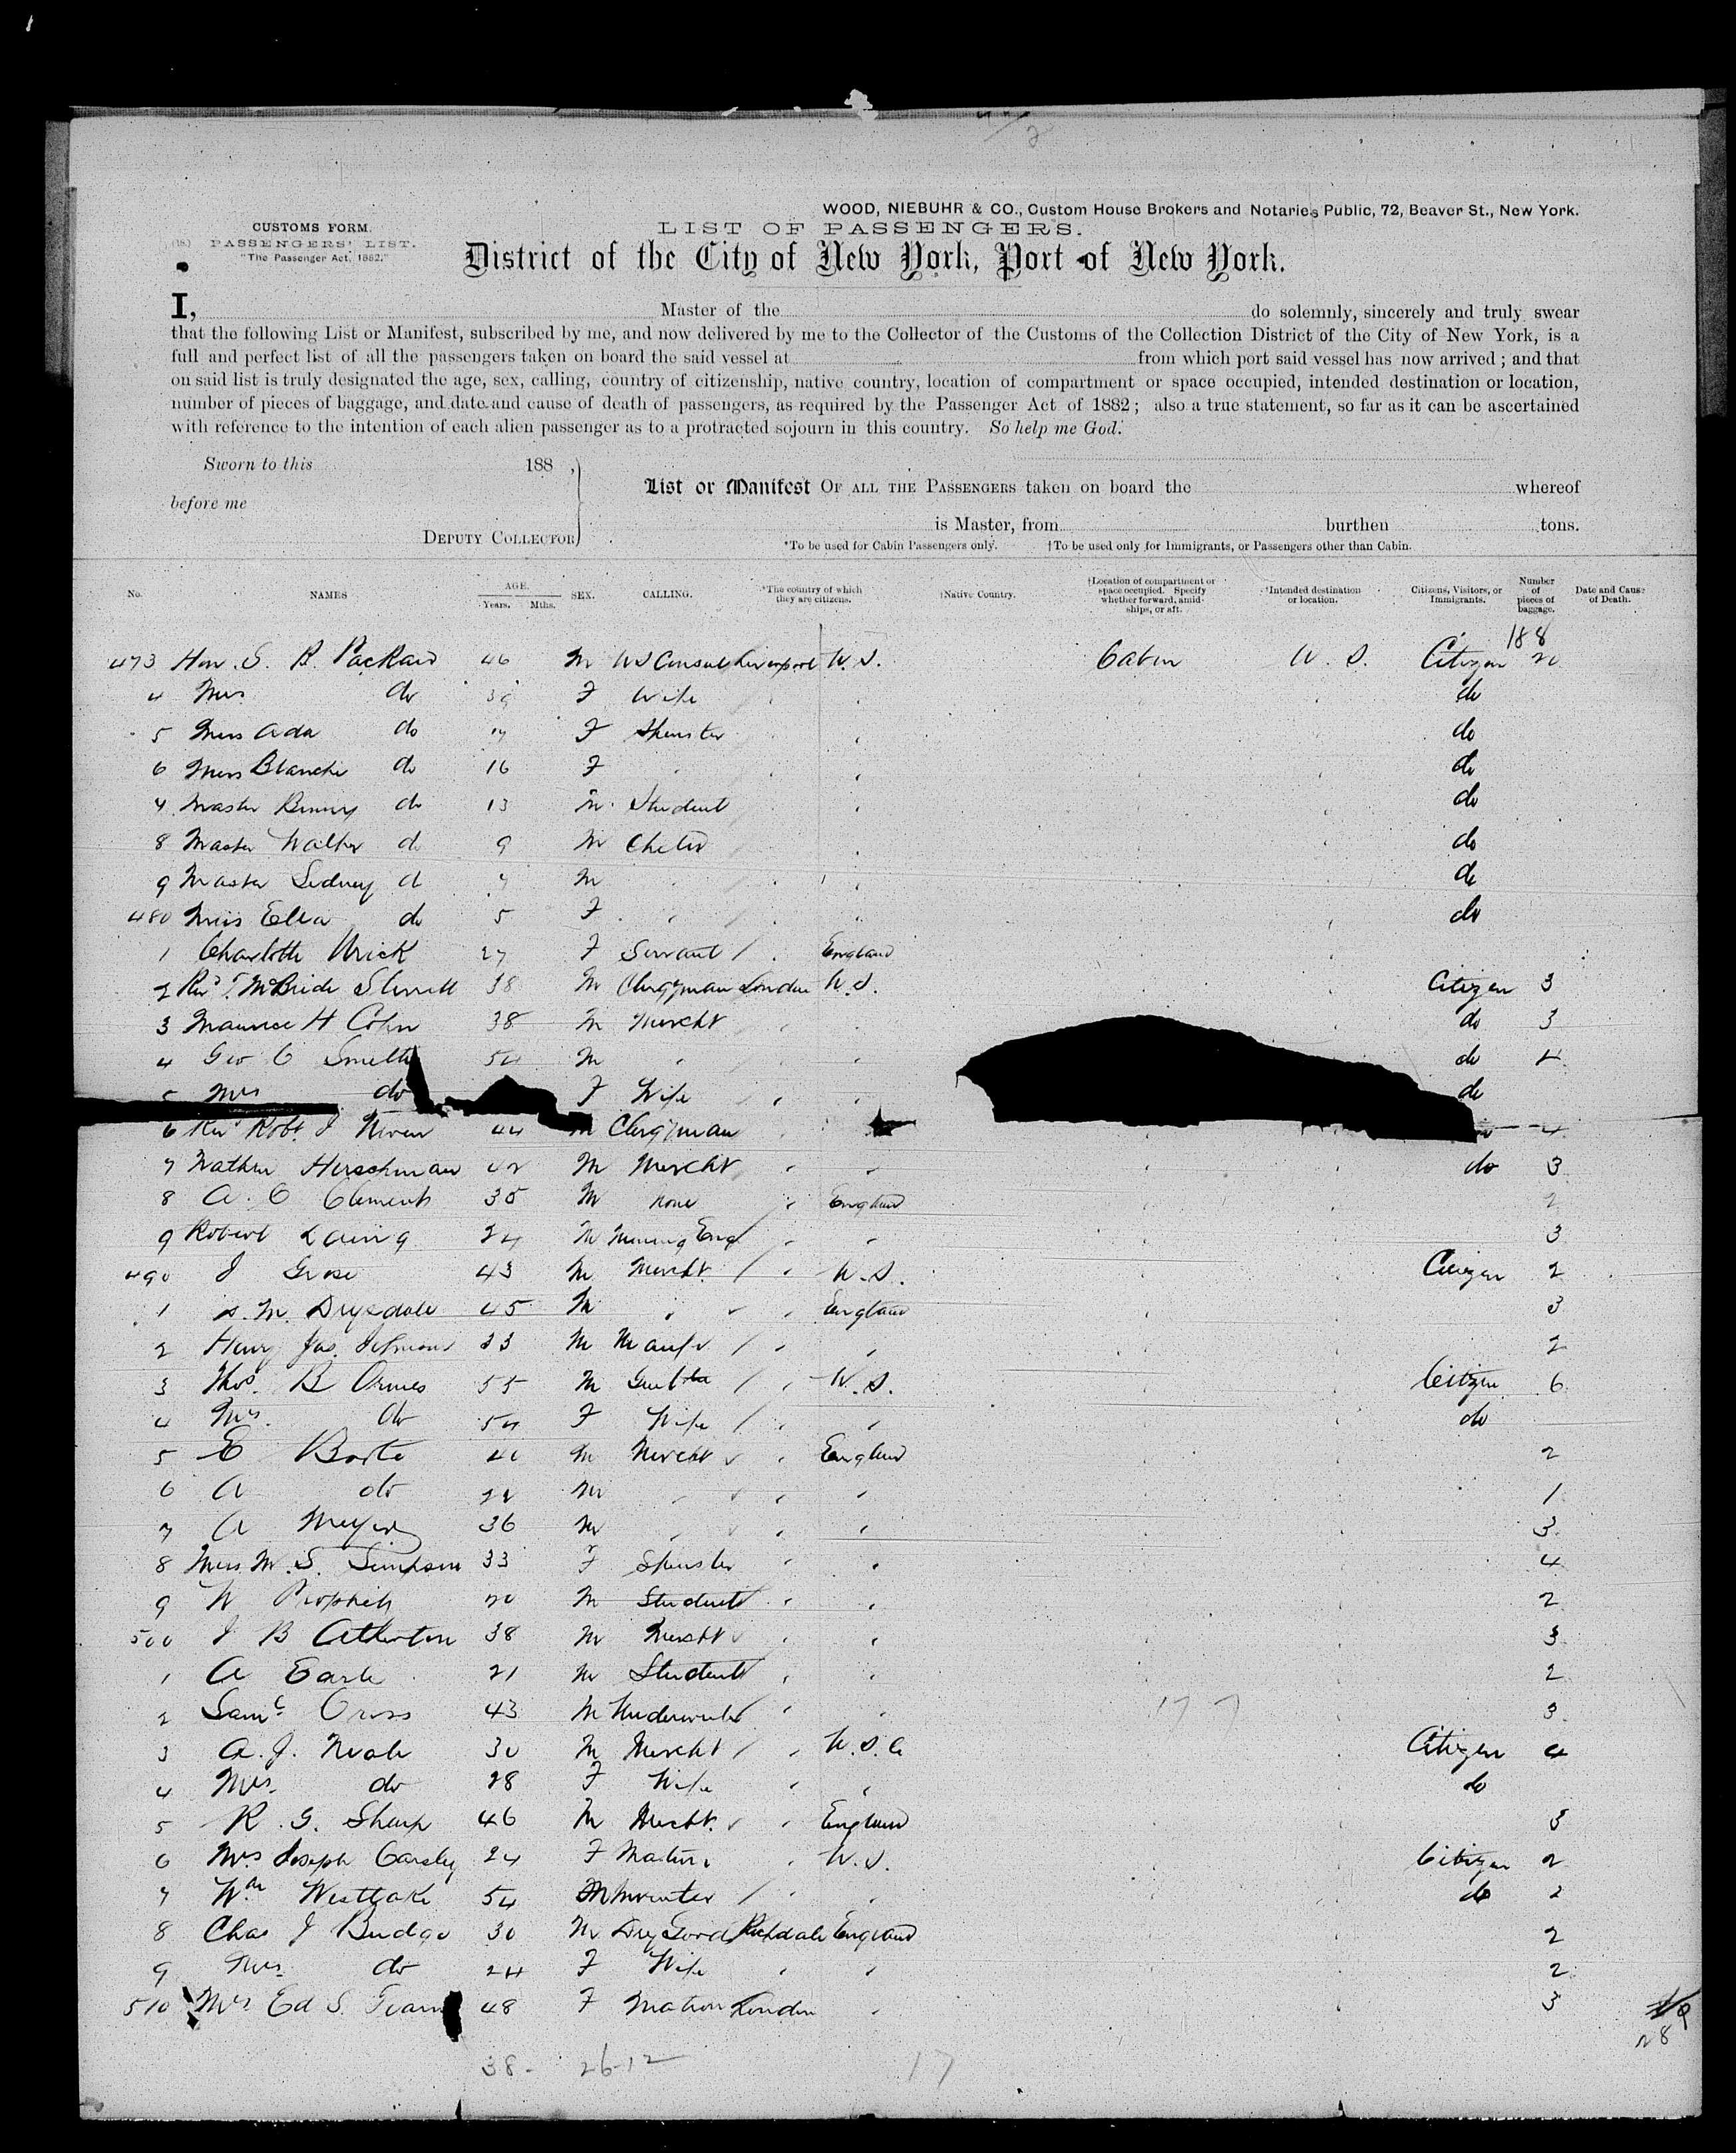 WOOD, NIEBUHR & CO., Custom House Brokers and Notaries Public, 72, Beaver St., New York.
CUSTOMS FORM.
LIST OF PASSENGERS.
(18.) PASSENGERS' LIST.
"The Passenger Act, 1882."
District of the City of New York, Port of New York.
I, Master of the do solemnly, sincerely and truly swear
that the following List or Manifest, subscribed by me, and now delivered by me to the Collector of the Customs of the Collection District of the City of New York, is a
full and perfect list of all the passengers taken on board the said vessel at from which port said vessel has now arrived ; and that
on said list is truly designated the age, sex, calling, country of citizenship, native country, location of compartment or space occupied, intended destination or location,
number of pieces of baggage, and date and cause of death of passengers, as required by the Passenger Act of 1882 ; also a true statement, so far as it can be ascertained
with reference to the intention of each alien passenger as to a protracted sojourn in this country. So help me God.
Sworn to this 188 ,
before me
DEPUTY COLLECTOR
List or Manifest OF ALL THE PASSENGERS taken on board the whereof
is Master, from burthen tons.
*To be used for Cabin Passengers only. †To be used only for Immigrants, or Passengers other than Cabin.
No. NAMES AGE. Years. Mths. SEX. CALLING. *The country of which they are citizens. †Native Country. †Location of compartment or space occupied. Specify whether forward, amidships, or aft. *Intended destination or location. Citizens, Visitors, or Immigrants. Number of pieces of baggage. Date and Cause of Death.
188
473 Hon. S. B. Packard 46 M US Consul Liverpool U.S. Cabin U. S. Citizen 20
4 Mrs do 39 F Wife do
5 Miss Ada do F Spinster do
6 Miss Blanche do 16 F do
7 Master do 13 M Student do
8 Master Walter do 9 M Child do
9 Master Sidney do 7 M do
480 Miss Ella do 5 F do
1 Charlotte 27 F Servant England
2 Revd J. McBride Sterrett 38 M Clergyman London U.S. Citizen 3
3 Maurice H Cohn 38 M Mercht do 3
4 Geo C Smith 54 M do 4
5 Mrs do F Wife do
6 Revd Robt J 44 M Clergyman 4
7 Nathan Herschman 42 M Mercht do 3
8 A. C Clements 35 M None England 2
9 Robert Laing 24 M Mining Eng 3
490 J Grose 43 M Mercht U.S. Citizen 2
1 S. M. Drysdale 45 M England 3
2 Henry Jas. 33 M Manufr 2
3 Thos. B Ormes 55 M U.S. Citizen 6
4 Mrs. do 54 F Wife do
5 E M Mercht England 2
6 A do M 1
7 A Meyer 36 M 3
8 Miss M. S. Simpson 33 F Spinster 4
9 W 20 M Student 2
500 J B Atherton 38 M Mercht 3
1 A Earle 21 M Student 2
2 Saml Cross 43 M Underwriter 3
3 A. J. Neale 30 M Mercht U.S.A Citizen 4
4 Mrs. do 28 F Wife do
5 R. G. Sharp 46 M Mercht. England 3
6 Mrs Joseph Carsley 24 F Matron U.S. Citizen 2
7 Wm Westlake 54 M Inventer do 2
8 Chas J Budge 30 M Dry Goods Rochdale England 2
9 Mrs. do 24 F Wife 2
510 Mrs Ed S. 48 F Matron London 3
28
38- 26-12 17